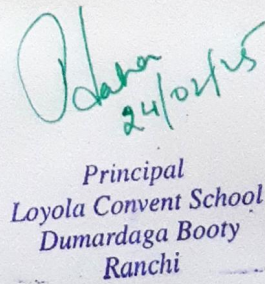 24/02/25
Principal
Loyola Convent School
Dumardaga Booty
Ranchi